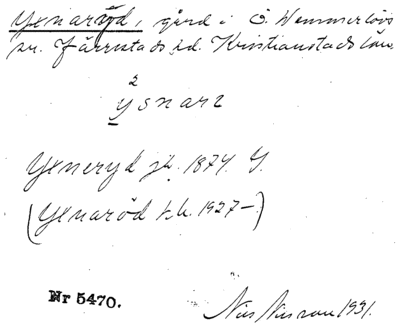 Yenaröd, gård i Ö. Hemmerlövs
sn. Järrestads hd. Kristianstads län.
2
ysnarz
Yeneryd jb. 1874. G.
(Yenaröd kb. 1927–)
Nr 5470.
Nils Nilsson 1931.